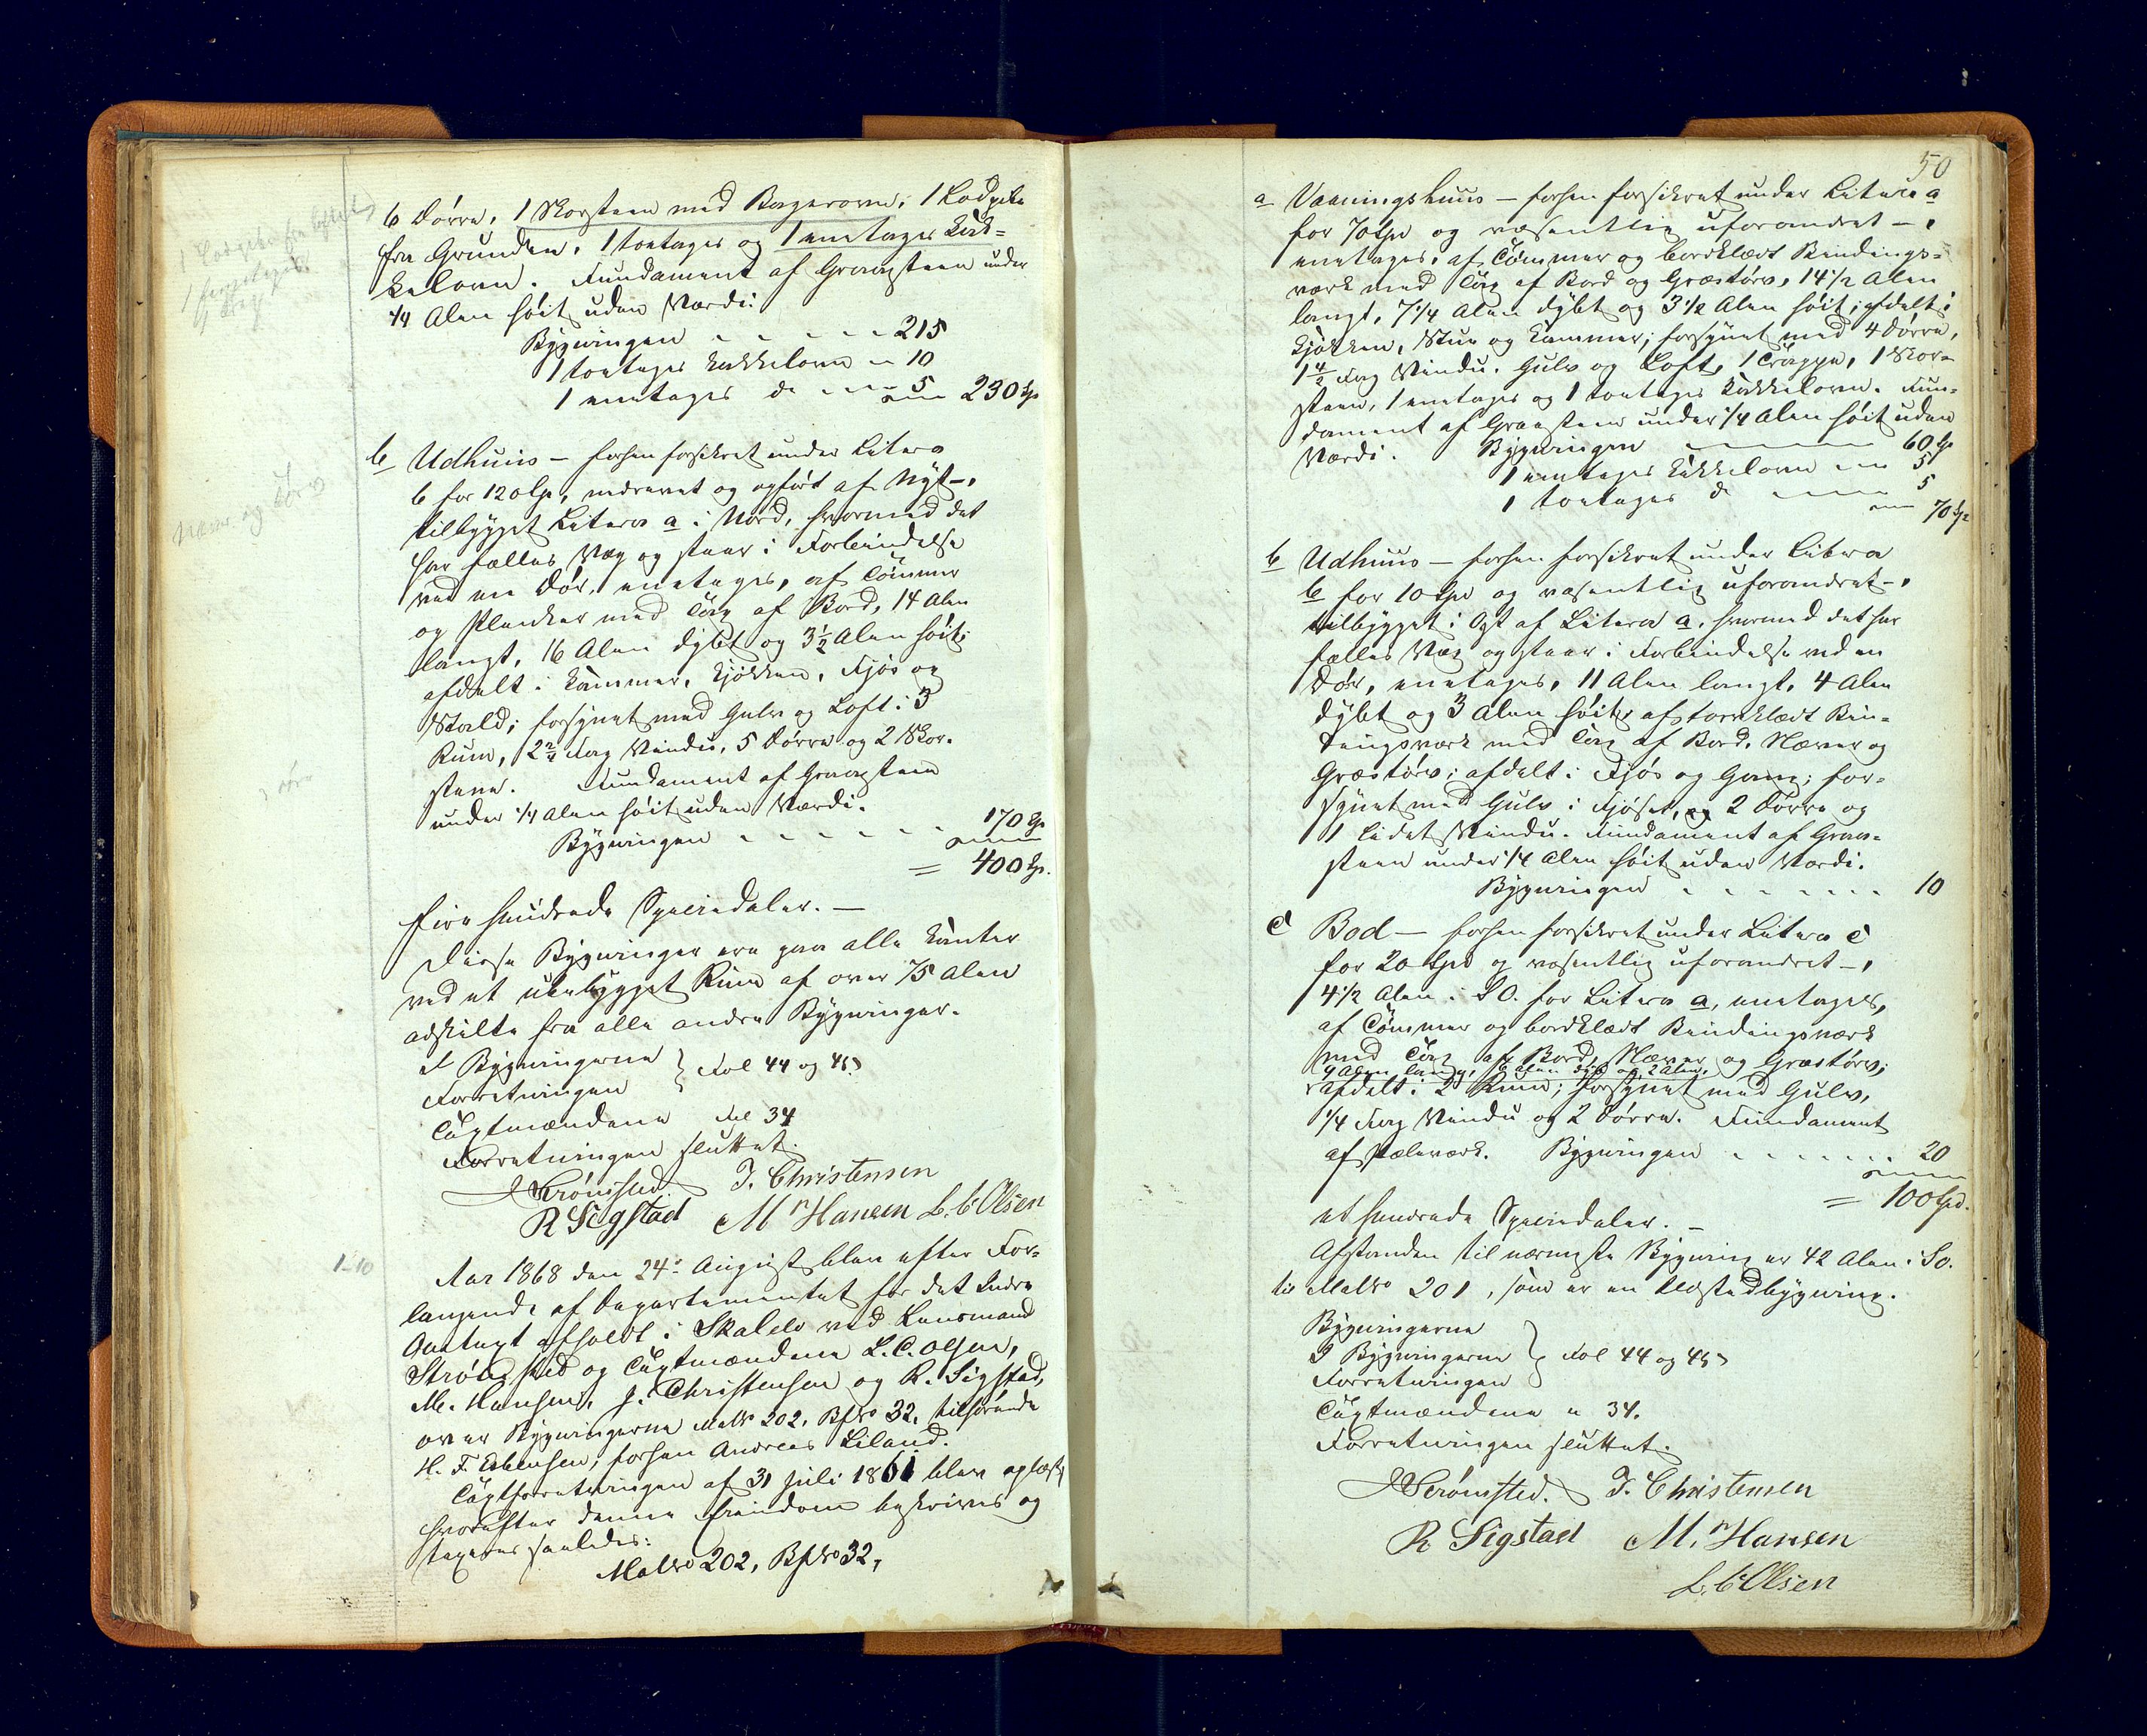 6 Dörre, 1 Skorsteen med Bagerovn, 1 Lodpibe
fra Grunden, 1 toetages og 1 eenetages Kak-
kelovn. Fundament af Graasteen under
1/4 Alen höit uden Værdi.
Bygningen - - - - - 215
1 toetages Kakkelovn - 10
1 eenetages do - - - 5 230 Sp
b Udhuus - forhen forsikret under Litera
b for 120 Sp, nedrevet og opfört af Nyt -,
tilbygget Litera a i Nord, hvormed det
har fælles Væg og staar i Forbindelse
ved en Dör, eenetages, af Tömmer
og Planker med Tag af Bord, 14 Alen
langt, 16 Alen dybt og 3 1/2 Alen höit;
afdelt i Kammer, Kjökken, Fjös og
Stald; forsynet med Gulv og Loft i 3
Rum, 2 2/4 Fag Vindu, 5 Dörre og 2 Skor-
stene. Fundament af Graasteen
under 1/4 Alen höit uden Værdi.
Bygningen - - - - - - 170 Sp
= 400 Sp.
Fire hundrede Speciedaler. -
Disse Bygninger ere paa alle Kanter
ved et ubebygget Rum af over 75 Alen
adskilte fra alle andre Bygninger.
I Bygningerne
Forretningen } Fol 44 og 45
Taxtmændene Fol 34
Forretningen sluttet.
Strömsted J. Christensen
R Sigstad M Hansen L. C. Olsen
1-10
Aar 1868 den 24de August blev efter For-
langende af Departementet for det Indre
Omtaxt afholdt i Skalelv ved Lensmand
Strömsted og Taxtmændene L. C. Olsen,
M. Hansen, J. Christensen og R. Sigstad,
over Bygningerne MatNo 202, BfNo 32, tilhörende
H. F. Esbensen, forhen Andreas Liland.
Taxtforretningen af 31 Juli 1861 blev oplæst,
hvorefter denne Eiendom beskrives og
taxeres saaledes:
MatNo 202, BfNo 32,
50
a Vaaningshuus - forhen forsikret under Litera a
for 70 Spd og væsentlig uforandret -,
eenetages, af Tömmer og bordklædt Bindings-
værk med Tag af Bord og Græstörv, 14 1/2 Alen
langt, 7 1/4 Alen dybt og 3 1/2 Alen höit; afdelt i
Kjökken, Stue og Kammer; forsynet med 4 Dörre,
Fag Vindu, Gulv og Loft, 1 Trappe, 1 Skor-
steen, 1 eenetages og 1 toetages Kakkelovn. Fun-
dament af Graasteen under 1/4 Alen höit uden
Værdi. Bygningen - - - 60 Sp
1 eenetages Kakkelovn - - 5
1 toetages do - - - - 5
70 Sp
b Udhuus - forhen forsikret under Litera
b for 10 Spd og væsentlig uforandret -,
tilbygget i Ost af Litera a, hvormed det har
fælles Væg og staar i Forbindelse ved en
Dör, eenetages, 11 Alen langt, 4 Alen
dybt og 3 Alen höit, af torvklædt Bin-
dingsværk med Tag af Bord, Næver og
Græstörv; afdelt i Fjös og Gang; for-
synet med Gulv i Fjöset, og 2 Dörre og
1 lidet Vindu. Fundament af Graa-
steen under 1/4 Alen höit uden Værdi.
Bygningen - - - - - - - 10
c Bod - forhen forsikret under Litera c
for 20 Spd og væsentlig uforandret -,
4 1/2 Alen i SO. for Litera a, eenetages,
af Tömmer og bordklædt Bindingsværk
med Tag af Bord, Næver og Græstörv;
9 Alen lang, 6 Alen dyb og 2 Alen,
afdelt i 2 Rum; forsynet med Gulv,
1/4 Fag Vindu og 2 Dörre. Fundament
af Pæleværk. Bygningen - - - - - - 20
= 100 Spd.
et hundrede Speciedaler. -
Afstanden til nærmeste Bygning er 42 Alen i So.
til MatNo 201, som er en Ildstedbygning.
Bygningerne
I Bygningerne
Forretningen } Fol 44 og 45
Taxtmændene " 34.
Forretningen sluttet.
Strömsted. J. Christensen
R Sigstad M. Hansen
L. C. Olsen